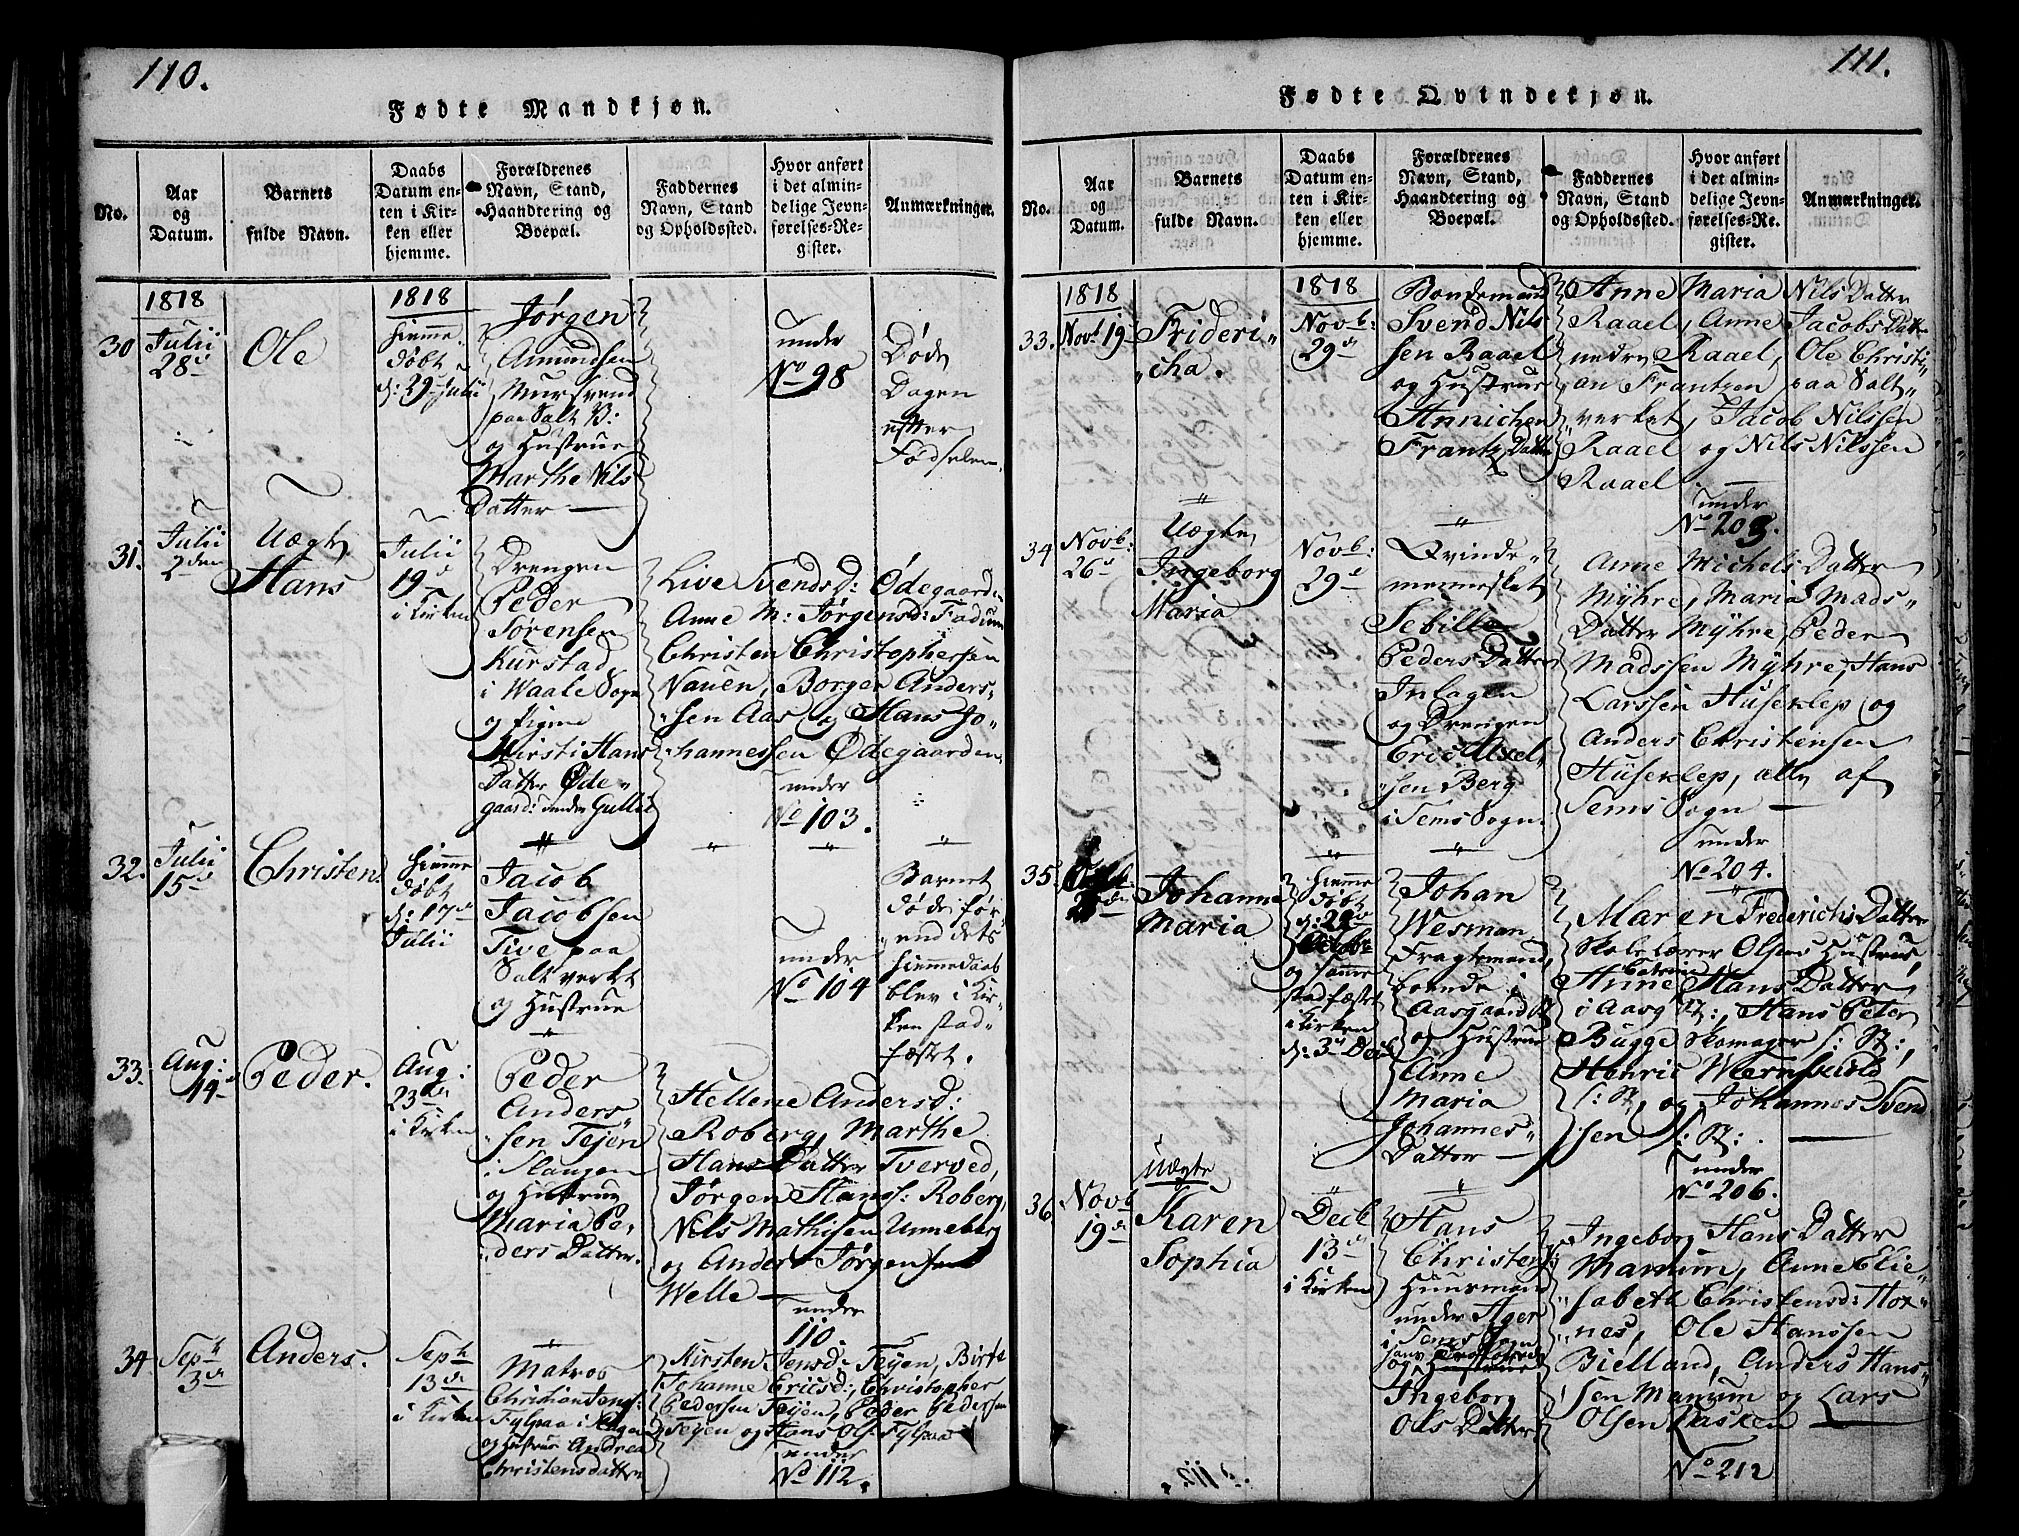 110.
Fødte Mandkjøn.
No.
Aar
og
Datum.
Barnets
fulde Navn.
Daabs
Datum en-
ten i Kir-
ken eller
hjemme.
Forældrenes
Navn, Stand,
Haandtering og
Boepæl.
Faddernes
Navn, Stand
og Opholdssted.
Hvor anført
i det almin-
delige Jevn-
førelses-Re-
gister.
Anmærkninger.
1818
30
Julii
28d
Ole
1818
hiemme
døbt
d: 29 Julii
Jørgen
Amundsen
Mursvend
paa Salt V:
og Hustrue
Marthe Nils
Datter —
under
No 98
Døde
Dagen
efter
Fødselen.
31.
Julii
2den
Uægt
Hans
Julii
19d
i Kirken
Drengen
Peder
Sørensen
Kurstad
i Waale Sogn
og Pigen
Kirsti Hans
Datter Øde-
gaard: under Gullie
Live Svendsd: Ødegaarden
Anne M: Jørgensd: Fadum
Christen Christophersen
Nauen, Borger Anders-
sen Aas og Hans Jo-
hannessen Ødegaarden
under
No 103.
32.
Julii
15d
Christen
hiemme
døbt
d: 17d
Julii
Jacob
Jacobsen
Tive paa
Saltverket
og Hustrue
under
No 104
Barnet
døde før
end dets
hiemmedaab
blev i Kir-
ken stad-
fæstet.
33.
Aug:
19
Peder.
Aug:
23de
i Kirken
Peder
Anders
sen Tejen
i Slangen
og Hustrue
Maria Pe-
ders Datter.
Hellene Andersd:
Roberg, Marthe
Hans Datter Tverved,
Jørgen Hanss: Roberg,
Nils Mathisen Unneberg
og Anders Jørgensen
Welle —
under
110.
34
Septb
3d
Anders.
Septb
13d
i Kirken
Matros
Christian Jens:
Fylpaa i
og Hustrue Andrea
Christensdatter
Kirsten Jensd: Teyen, Birte
Johanne Ericsd:, Christopher
Pedersen Teyen, Peder Pedersen
Teyen og Hans Ols: Fylpaa
under
No 112.
111.
Fødte Qvindekjøn.
No.
Aar
og
Datum.
Barnets
fulde Navn.
Daabs
Datum en-
ten i Kir-
ken eller
hjemme.
Forældrenes
Navn, Stand,
Haandtering og
Boepæl.
Faddernes
Navn, Stand
og Opholdssted.
Hvor anført
i det almin-
delige Jevn-
førelses-Re-
gister.
Anmærkninger.
1818
33.
Novb 19
Frideri-
cha.
1818
Novb:
29d
Bondemand
Svend Nils
sen Raael
og Hustrue
Annichen
Frantz Datter
Anne Maria Nils Datter
Raael, Anne Jacobs Dat-
nedre Raael, Ole Christi-
an Frantzen paa Salt-
verket, Jacob Nilssen
Raael og Nils Nilssen
Raael
under
No 203.
34
Novb:
26d
Uægte
Ingeborg
Maria
Novb:
29d
Qvinde-
mennesket
Sebille
Peders Datter
Inlagen
og Drengen
Eric Axel-
sen Berg
i Sems Sogn.
Anne Michels Datter
Myhre, Maria Mads-
Datter Myhre, Peder
Madssen Myhre, Hans
Larssen Huseklep og
Anders Christensen
Huseklep, alle af
Sems Sogn —
under
No 204.
35.
Johanne
Maria
hiemme
døbt
d: 22d
Octobr
og samme
stadfæstet
i Kirken
d: 3d Decb
Johan
Wesman
Fragtemand,
boende i
Aasgaard St
og Hustrue
Anne
Maria
Johannes-
Datter —
Maren Frederichs Datter
Skolelærer Olsens Hustrue,
Anne Catrine Hans Datter
i Aasg St:, Hans Peter
Bugge Skomager s: St:,
Henric Wernskiold
s: St og Johannes Svend
sen s: St:
under
No 206.
36.
Novb
19d
Uægte
Karen
Sophia
Decb
13d
i Kirken
Hans
Christens:
Huusmand
under Ager
i Sems Sogn
og Hustrue
Ingeborg
Ols Datter
Ingeborg Hans Datter
Manum, Anne Elie-
sabeth Christensd: Hox-
nes, Ole Hanssen
Bielland, Anders Hans-
sen Manum og Lars
Olsen Lasken
No 212